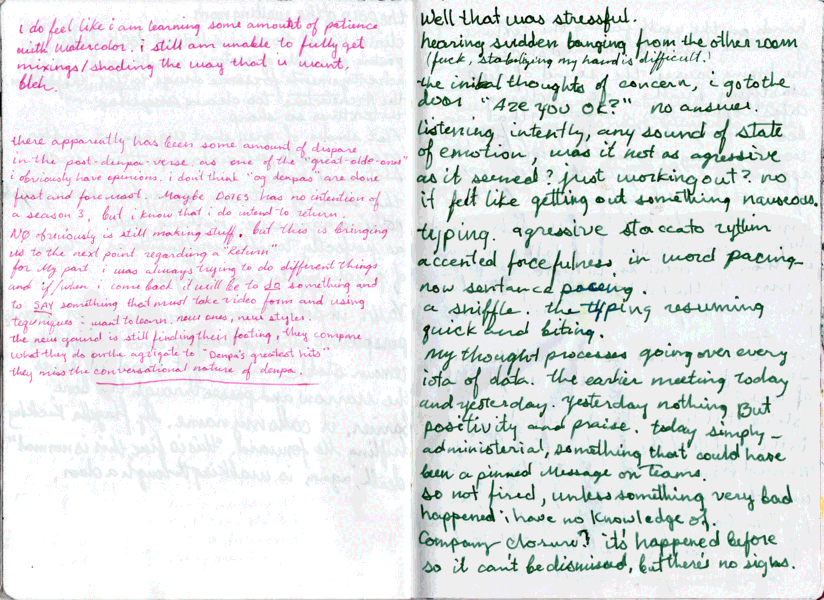 i do feel like i am learning some amount of patience
with watercolor. i still am unable to fully get
mixings/shading the way that i want,
bleh.
there apparently has been some amount of dispare
in the post-denpa-verse. as one of the "great-olde-ones"
i obviously have opinions. i don't think "og denpas" are done
first and foremost. Maybe DOTES has no intention of
a season 3, but i know that i do intend to return.
NO obviously is still making stuff. but this is bringing
us to the next point regarding a "Return"
for My part i was always trying to do different things
and if/when i come back it will be to DO something and
to SAY something that must take video form and using
tequniques i want to learn, new ones, new styles.
the new gaurd is still finding their footing, they compare
what they do on the agrigate to "Denpa's greatest hits"
they miss the conversational nature of denpa.
Well that was stressful.
hearing sudden banging from the other room
(fuck, stabilizing my hand is difficult.)
the initial thoughts of concern, i go to the
door "ARE YOU OK?" no answer.
listening intently, any sound of state
of emotion, was it not as agressive
as it seemed? just working out? no
it felt like getting out something nauseous.
typing. agressive staccato rythim
accented forcefulness in word pacing-
now sentance pacing.
a sniffle. the typing resuming
quick and biting.
My thought processes going over every
iota of data. the earlier meeting today
and yesterday. Yesterday nothing But
positivity and praise. today simply-
administerial, something that could have
been a pinned Message on Teams.
so not fired, unless something very bad
happened i have no knowledge of.
Company closure? it's happened before
so it can't be dismissed, but there's no signs.